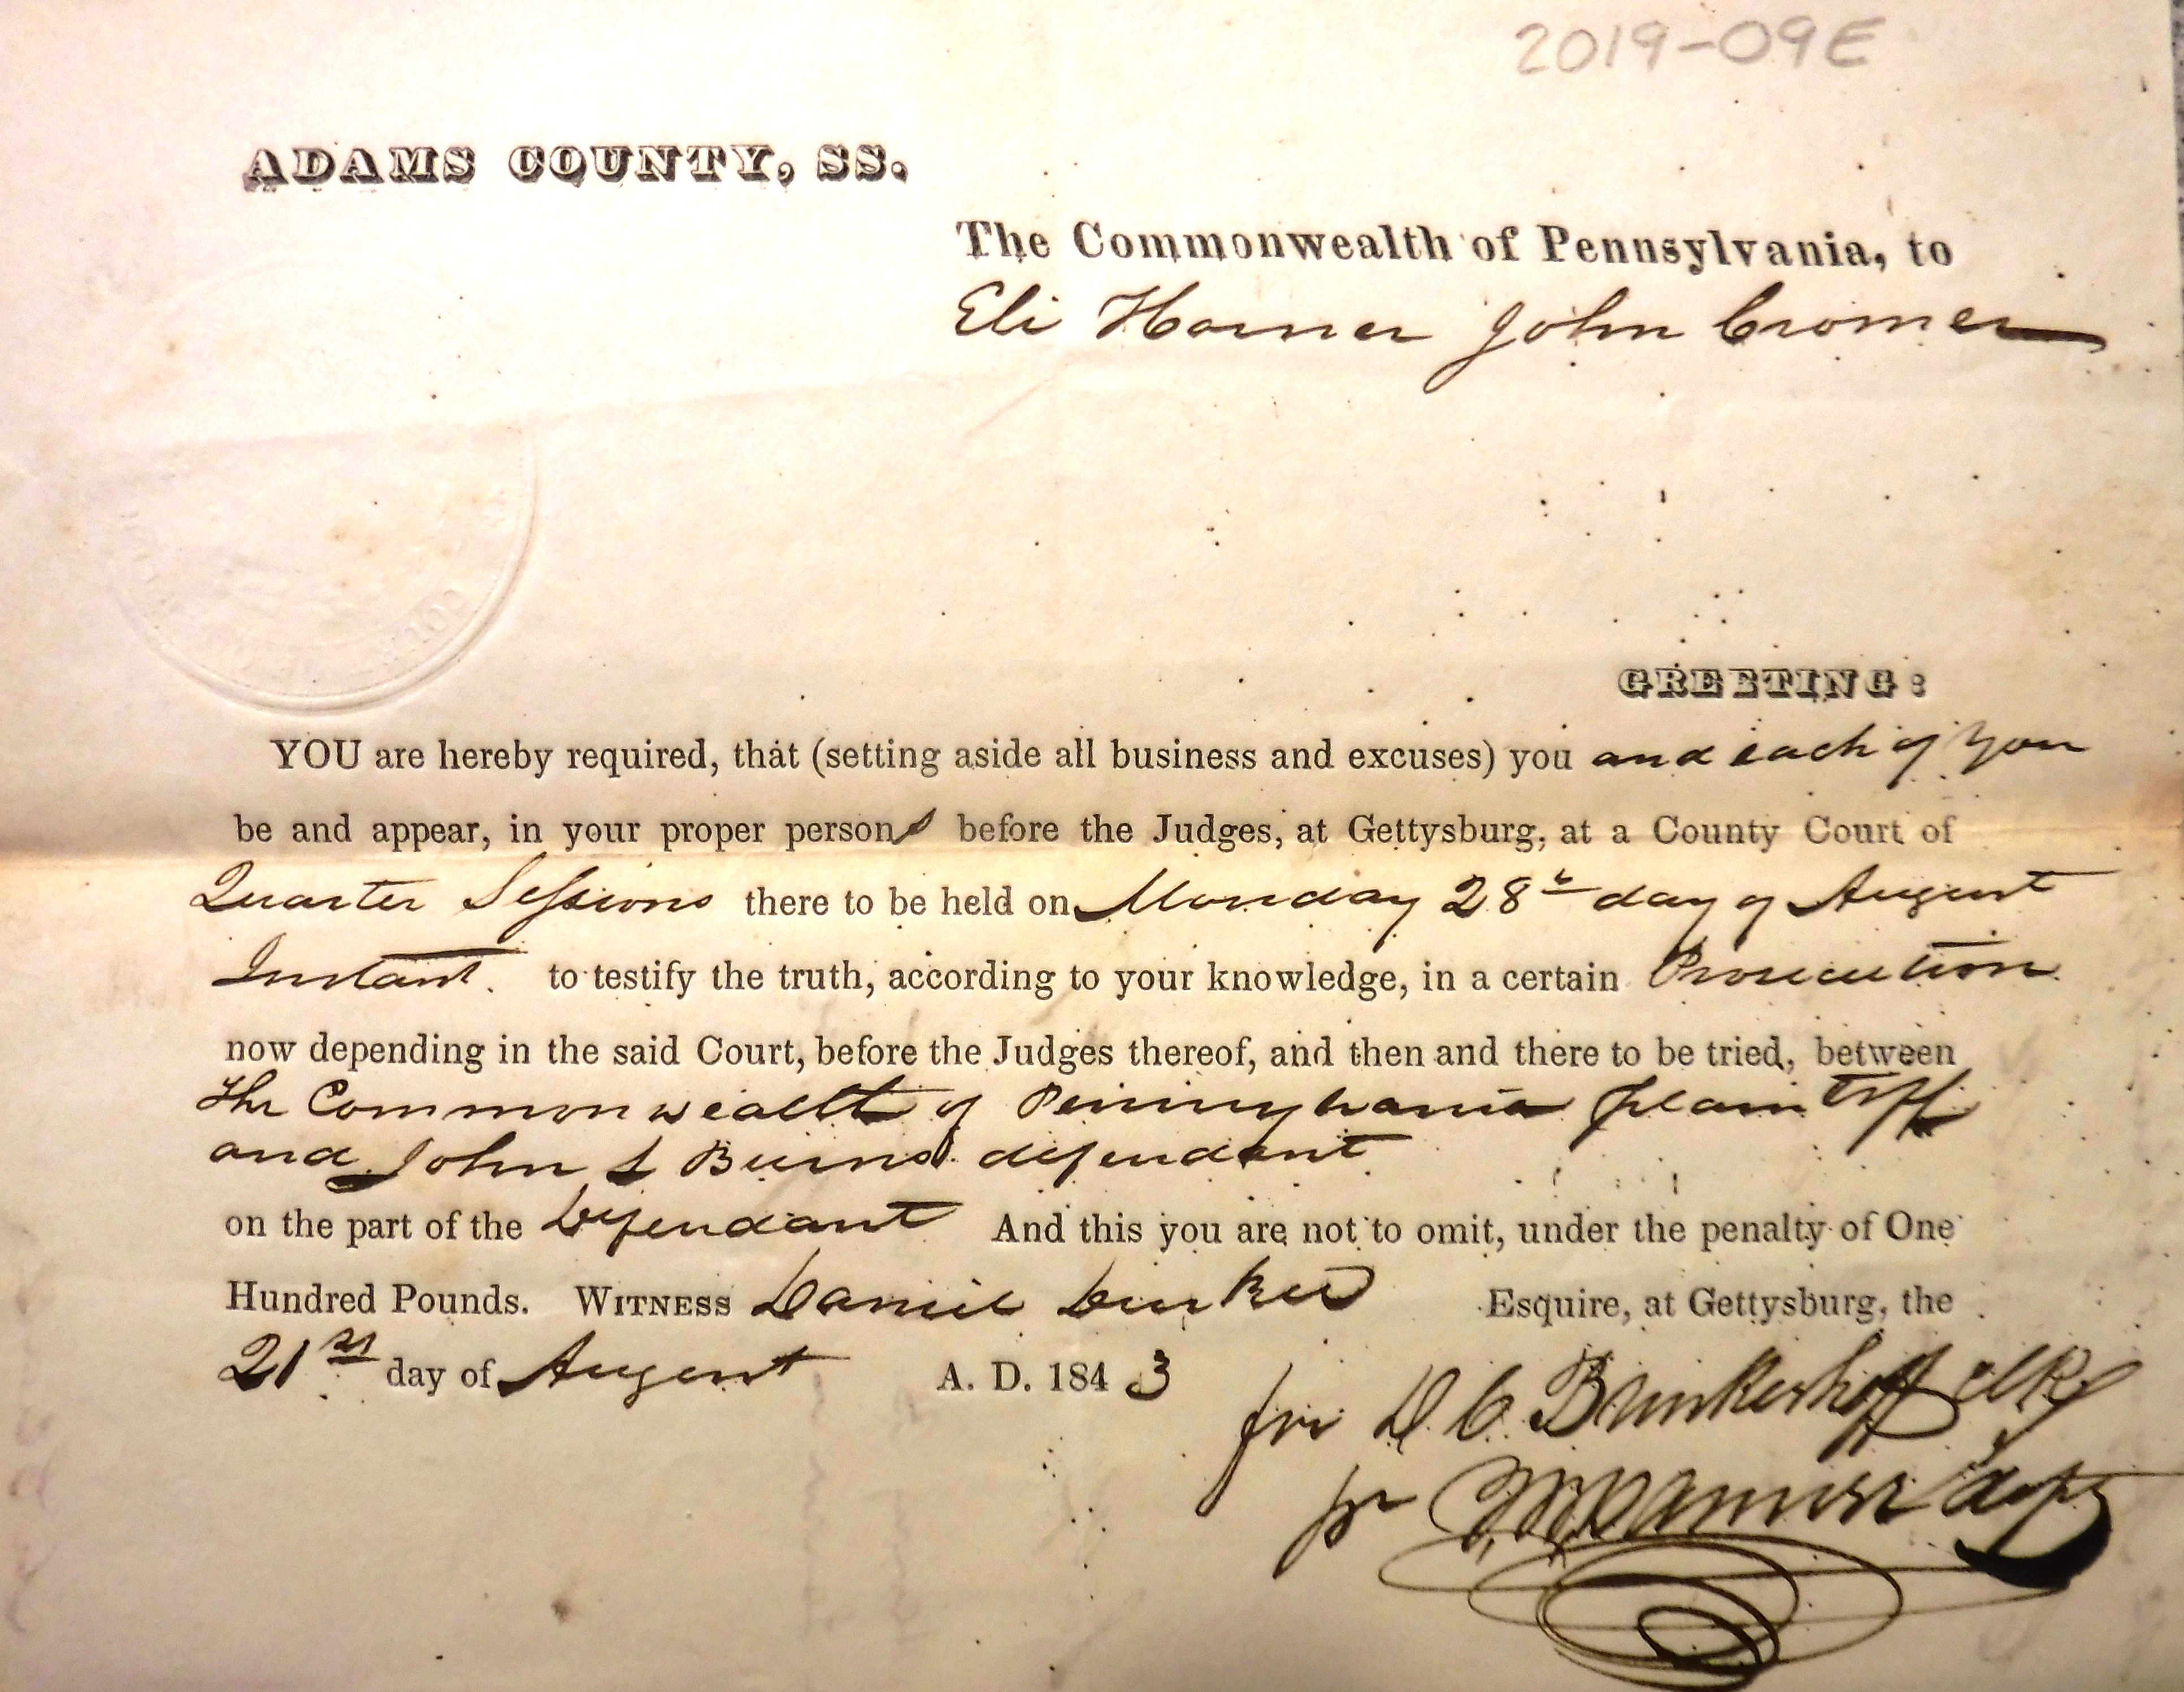 2019-09E
ADAMS COUNTY, SS.
The Commonwealth of Pennsylvania, to
Eli Horner John Cromer
GREETING:
YOU are hereby required, that (setting aside all business and excuses) you and each of you
be and appear, in your proper persons before the Judges, at Gettysburg, at a County Court of
Quarter Sessions there to be held on Monday 28th day of August
Instant. to testify the truth, according to your knowledge, in a certain Prosecution
now depending in the said Court, before the Judges thereof, and then and there to be tried, between
The Commonwealth of Pennsylvania plaintiff
and John L Burns defendant
on the part of the Defendant And this you are not to omit, under the penalty of One
Hundred Pounds. WITNESS Daniel Durkee Esquire, at Gettysburg, the
21st day of August A. D. 1843
for D C Brinkerhoff clk
pr depy